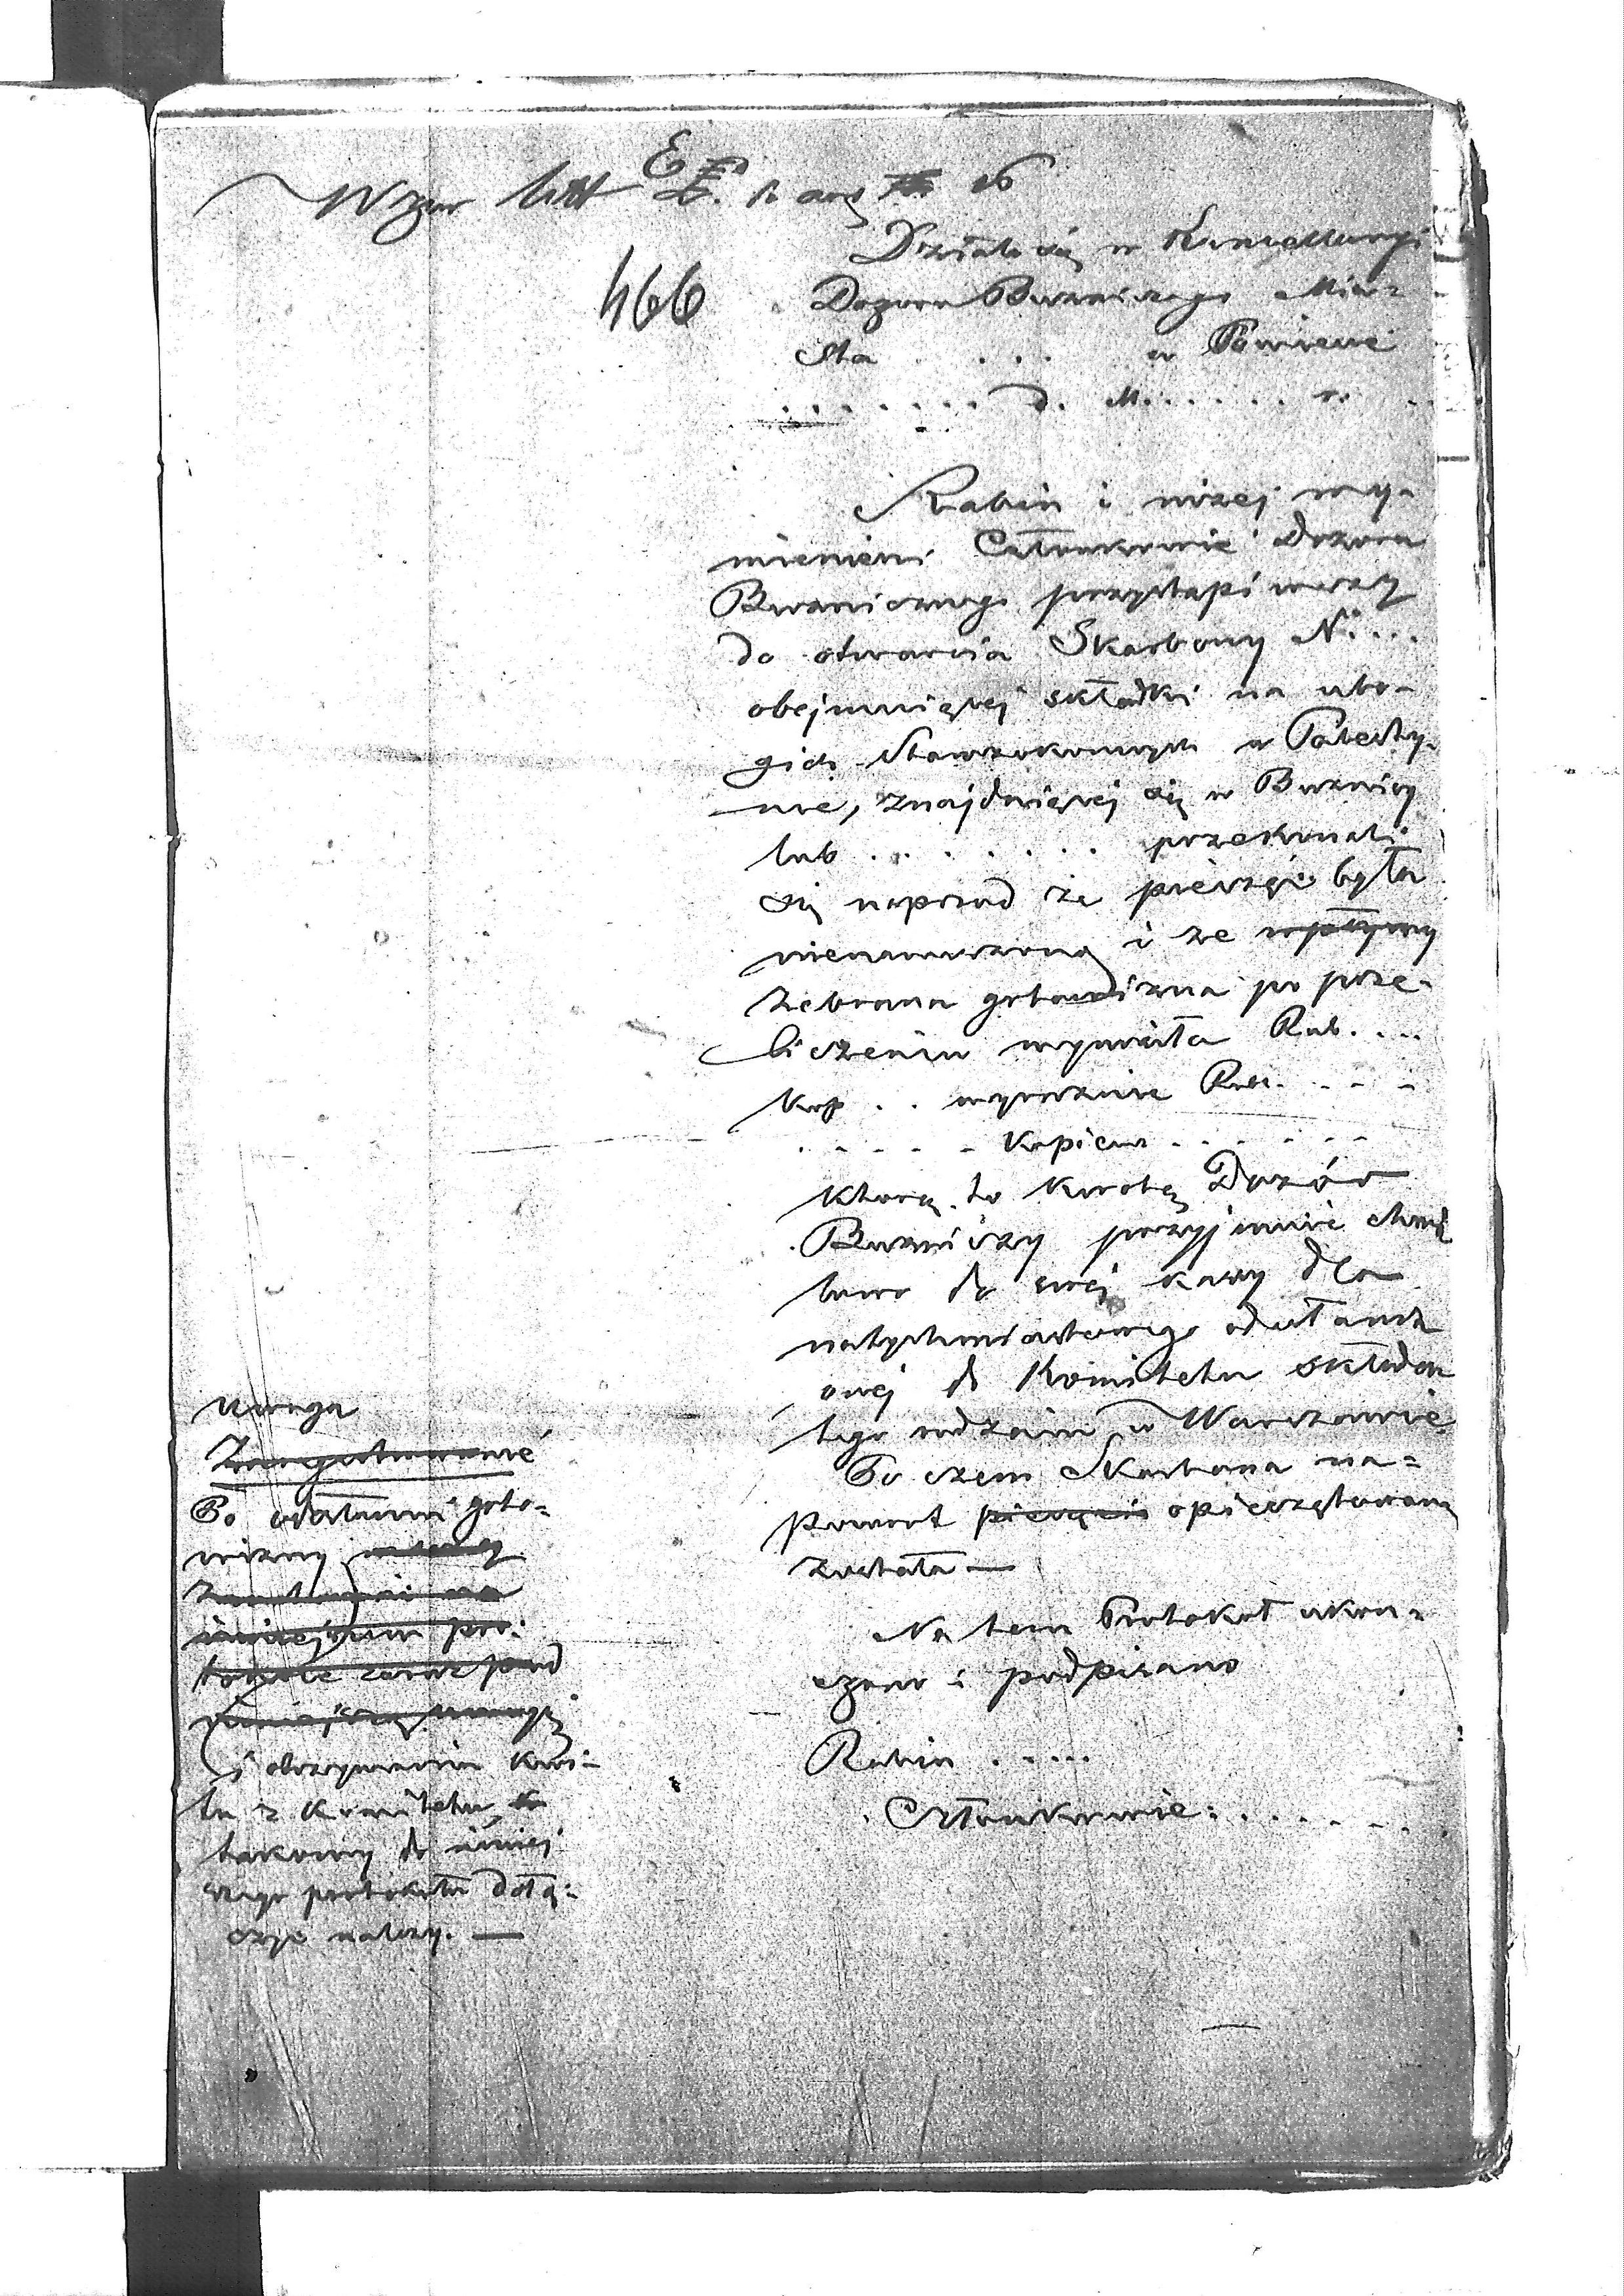 Wzór litt E. do art 16
466
Działo się w Kancellaryi
Dozoru Bużniczego Mias=
sta . . . . w Powiecie
. . . . . . . d. M. . . . . . r.
Rabin i niżej wy-
mienieni Członkowie Dozoru
Bużniczego przystąpiwszy
do otwarcia Skarbony N° ...
obejmuiącej składki na ubo-
gich Starozakonnych w Palesty-
nie, znajduiącej się w Bużnicy
lub . . . . . . . . przekonali
się naprzód że pieczęć była
nienaruszoną i że wpływy
zebrana gotowizna po prze-
liczeniu wynosiła Rub. ...
Kop . . wyraźnie Rubl. . . .
. . . . . Kopiew . . . . . .
którą to kwotę Dozór
Bużniczy przyjmuie
do swej kassy dla
natychmiastowego odesłania
onej do Komitetu składek
tego rodzaiu w Warszawie.
Po czem Skarbona na=
powrót pieczęcią opieczętowaną
została —
Na tem Protokół ukoń=
czono i podpisano
Rabin . . . . .
Członkowie: . . . . . .
Uwaga
Po odesłaniu goto=
wizny
niniejszym pro:
tokole zaraz pod
niniejszą uwagą
i otrzymaniu kwi=
tu z Komitetu
takowy do niniej
szego protokółu dołą=
czyć należy. —